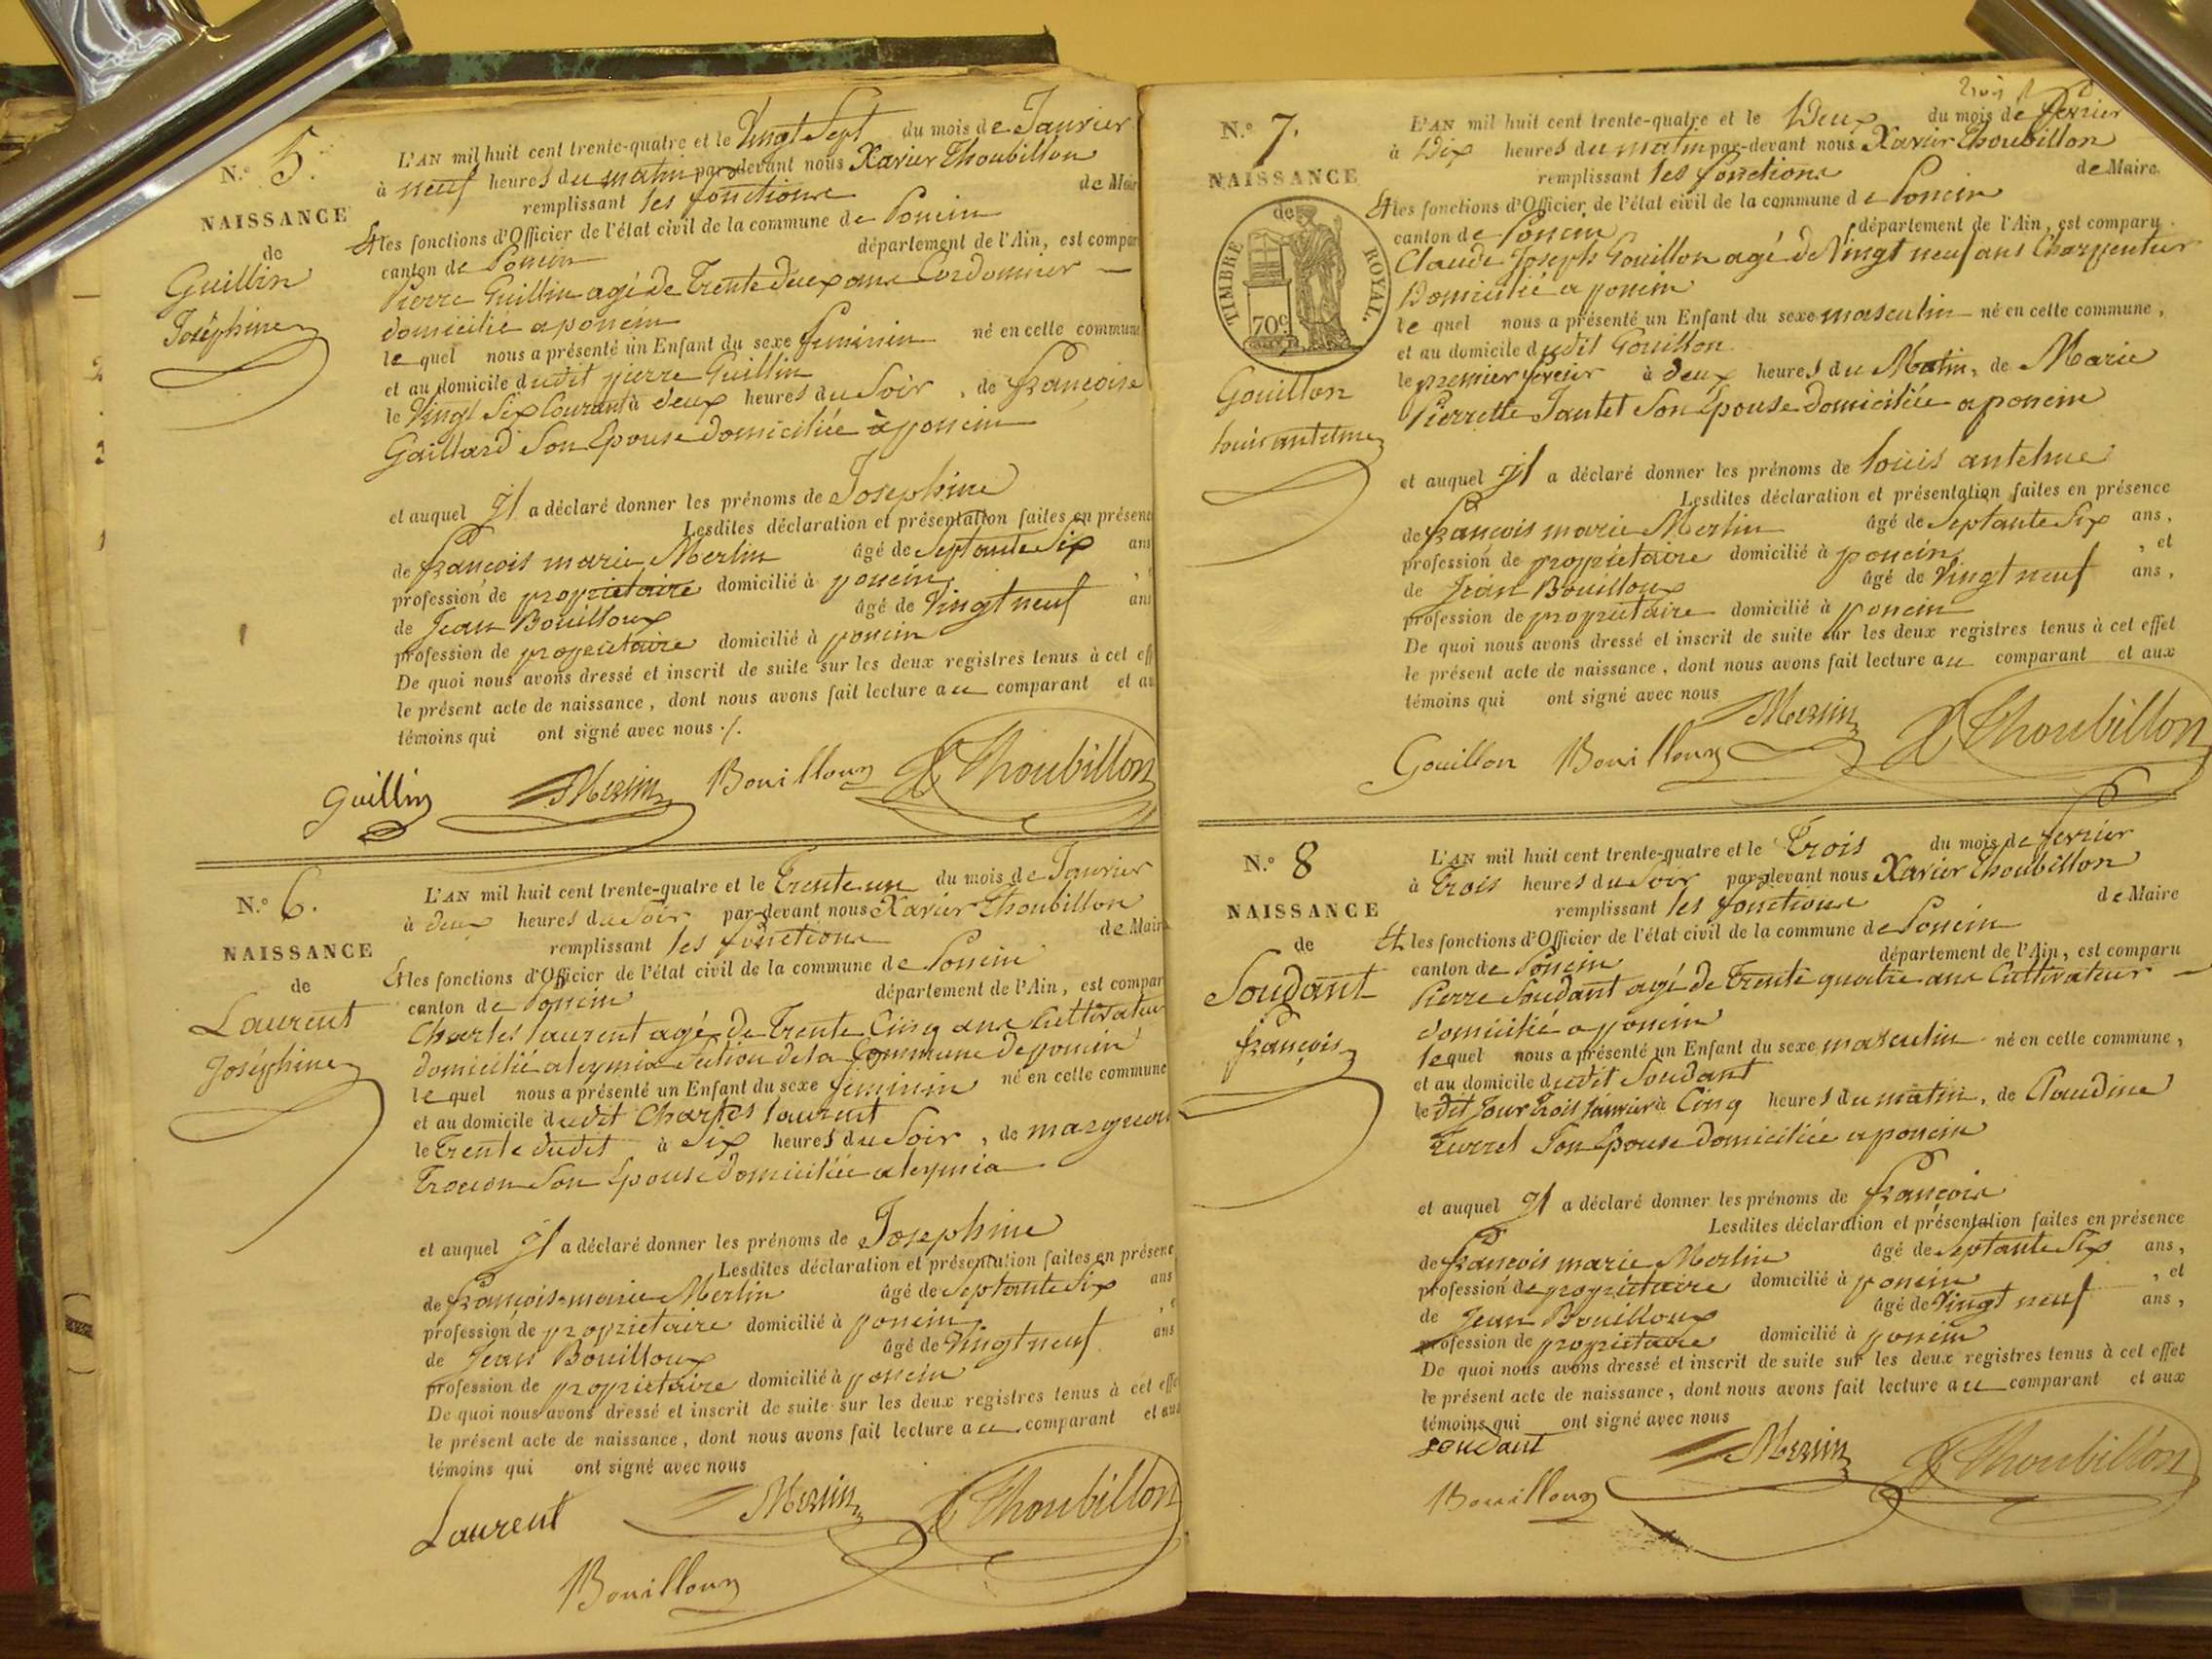 N.º 5.
NAISSANCE
de
Guillin
Joséphine
L'AN mil huit cent trente-quatre et le Vingt Sept du mois de Janvier
à neuf heures du matin par-devant nous Xavier Thoubillon
remplissant les fonctions de Mair
et les fonctions d'Officier de l'état civil de la commune de Poncin
canton de Poncin département de l'Ain, est compar
Pierre Guillin agé de Trente deux ans Cordonnier —
domicilié a poncin
le quel nous a présenté un Enfant du sexe feminin né en celle commune
et au domicile dudit pierre Guillin
le Vingt Six Courant à deux heures du Soir, de françoise
Gaillard Son Epouse domiciliée à poncin
et auquel Il a déclaré donner les prénoms de Josephine
Lesdites déclaration et présentation faites en présenc
de françois marie Merlin âgé de Septante Six ans
profession de proprietaire domicilié à poncin,
de Jean Bouilloux âgé de Vingt neuf ans
profession de proprietaire domicilié à poncin
De quoi nous avons dressé et inscrit de suite sur les deux registres tenus à cet eff
le présent acte de naissance, dont nous avons fait lecture au comparant et au
témoins qui ont signé avec nous ./.
Guillin Merlin Bouilloux X Thoubillon
N.º 6.
NAISSANCE
de
Laurent
Joséphine
L'AN mil huit cent trente-quatre et le Trente un du mois de Janvier
à deux heures du Soir par-devant nous Xavier Thoubillon
remplissant les fonctions de Mair
et les fonctions d'Officier de l'état civil de la commune de Poncin
canton de Poncin département de l'Ain, est compar
Charles laurent agé de Trente Cinq ans Cultivateur
domicilié a leymia Section de la Commune de poncin
le quel nous a présenté un Enfant du sexe feminin né en celle commune
et au domicile dudit Charles laurent
le Trente dudit à Six heures du Soir, de
Son Epouse domiciliée a leymia
et auquel Il a déclaré donner les prénoms de Josephine
Lesdites déclaration et présentation faites en présenc
de françois marie Merlin âgé de Septante Six ans
profession de proprietaire domicilié à poncin,
de Jean Bouilloux âgé de Vingt neuf ans
profession de proprietaire domicilié à poncin
De quoi nous avons dressé et inscrit de suite sur les deux registres tenus à cet effe
le présent acte de naissance, dont nous avons fait lecture au comparant et aux
témoins qui ont signé avec nous
Laurent Merlin X Thoubillon
Bouilloux
N.º 7.
NAISSANCE
de
TIMBRE ROYAL.
70c
Gouillon
louis antelme
L'AN mil huit cent trente-quatre et le Deux du mois de fevrier
à Dix heures du matin par-devant nous Xavier Thoubillon
remplissant les fonctions de Maire
et les fonctions d'Officier de l'état civil de la commune de Poncin
canton de Poncin département de l'Ain, est comparu
Claude Joseph Gouillon agé de Vingt neuf ans Charpentier
Domicilié a poncin
le quel nous a présenté un Enfant du sexe masculin né en celle commune,
et au domicile dudit Gouillon
le premier fevrier à deux heures du Matin, de Marie
Pierrette Jantet Son Epouse domiciliée a poncin
et auquel Il a déclaré donner les prénoms de louis antelme
Lesdites déclaration et présentation faites en présence
de françois marie Merlin âgé de Septante Six ans,
profession de proprietaire domicilié à poncin, et
de Jean Bouilloux âgé de Vingt neuf ans,
profession de proprietaire domicilié à poncin
De quoi nous avons dressé et inscrit de suite sur les deux registres tenus à cet effet
le présent acte de naissance, dont nous avons fait lecture au comparant et aux
témoins qui ont signé avec nous
Gouillon Bouilloux Merlin X Thoubillon
N.º 8
NAISSANCE
de
Soudant
françois
L'AN mil huit cent trente-quatre et le Trois du mois de fevrier
à Trois heures du Soir par-devant nous Xavier Thoubillon
remplissant les fonctions de Maire
et les fonctions d'Officier de l'état civil de la commune de Poncin
canton de Poncin département de l'Ain, est comparu
Pierre Soudant agé de Trente quatre ans Cultivateur —
domicilié a poncin
le quel nous a présenté un Enfant du sexe masculin né en celle commune,
et au domicile dudit Soudant
le dit Jour Trois Janvier à Cinq heures du matin, de Claudine
Turrel Son Epouse domiciliée a poncin
et auquel Il a déclaré donner les prénoms de françois
Lesdites déclaration et présentation faites en présence
de françois marie Merlin âgé de Septante Six ans,
profession de proprietaire domicilié à poncin, et
de Jean Bouilloux âgé de Vingt neuf ans,
profession de proprietaire domicilié à poncin
De quoi nous avons dressé et inscrit de suite sur les deux registres tenus à cet effet
le présent acte de naissance, dont nous avons fait lecture au comparant et aux
témoins qui ont signé avec nous
soudant Merlin X Thoubillon
Bouilloux